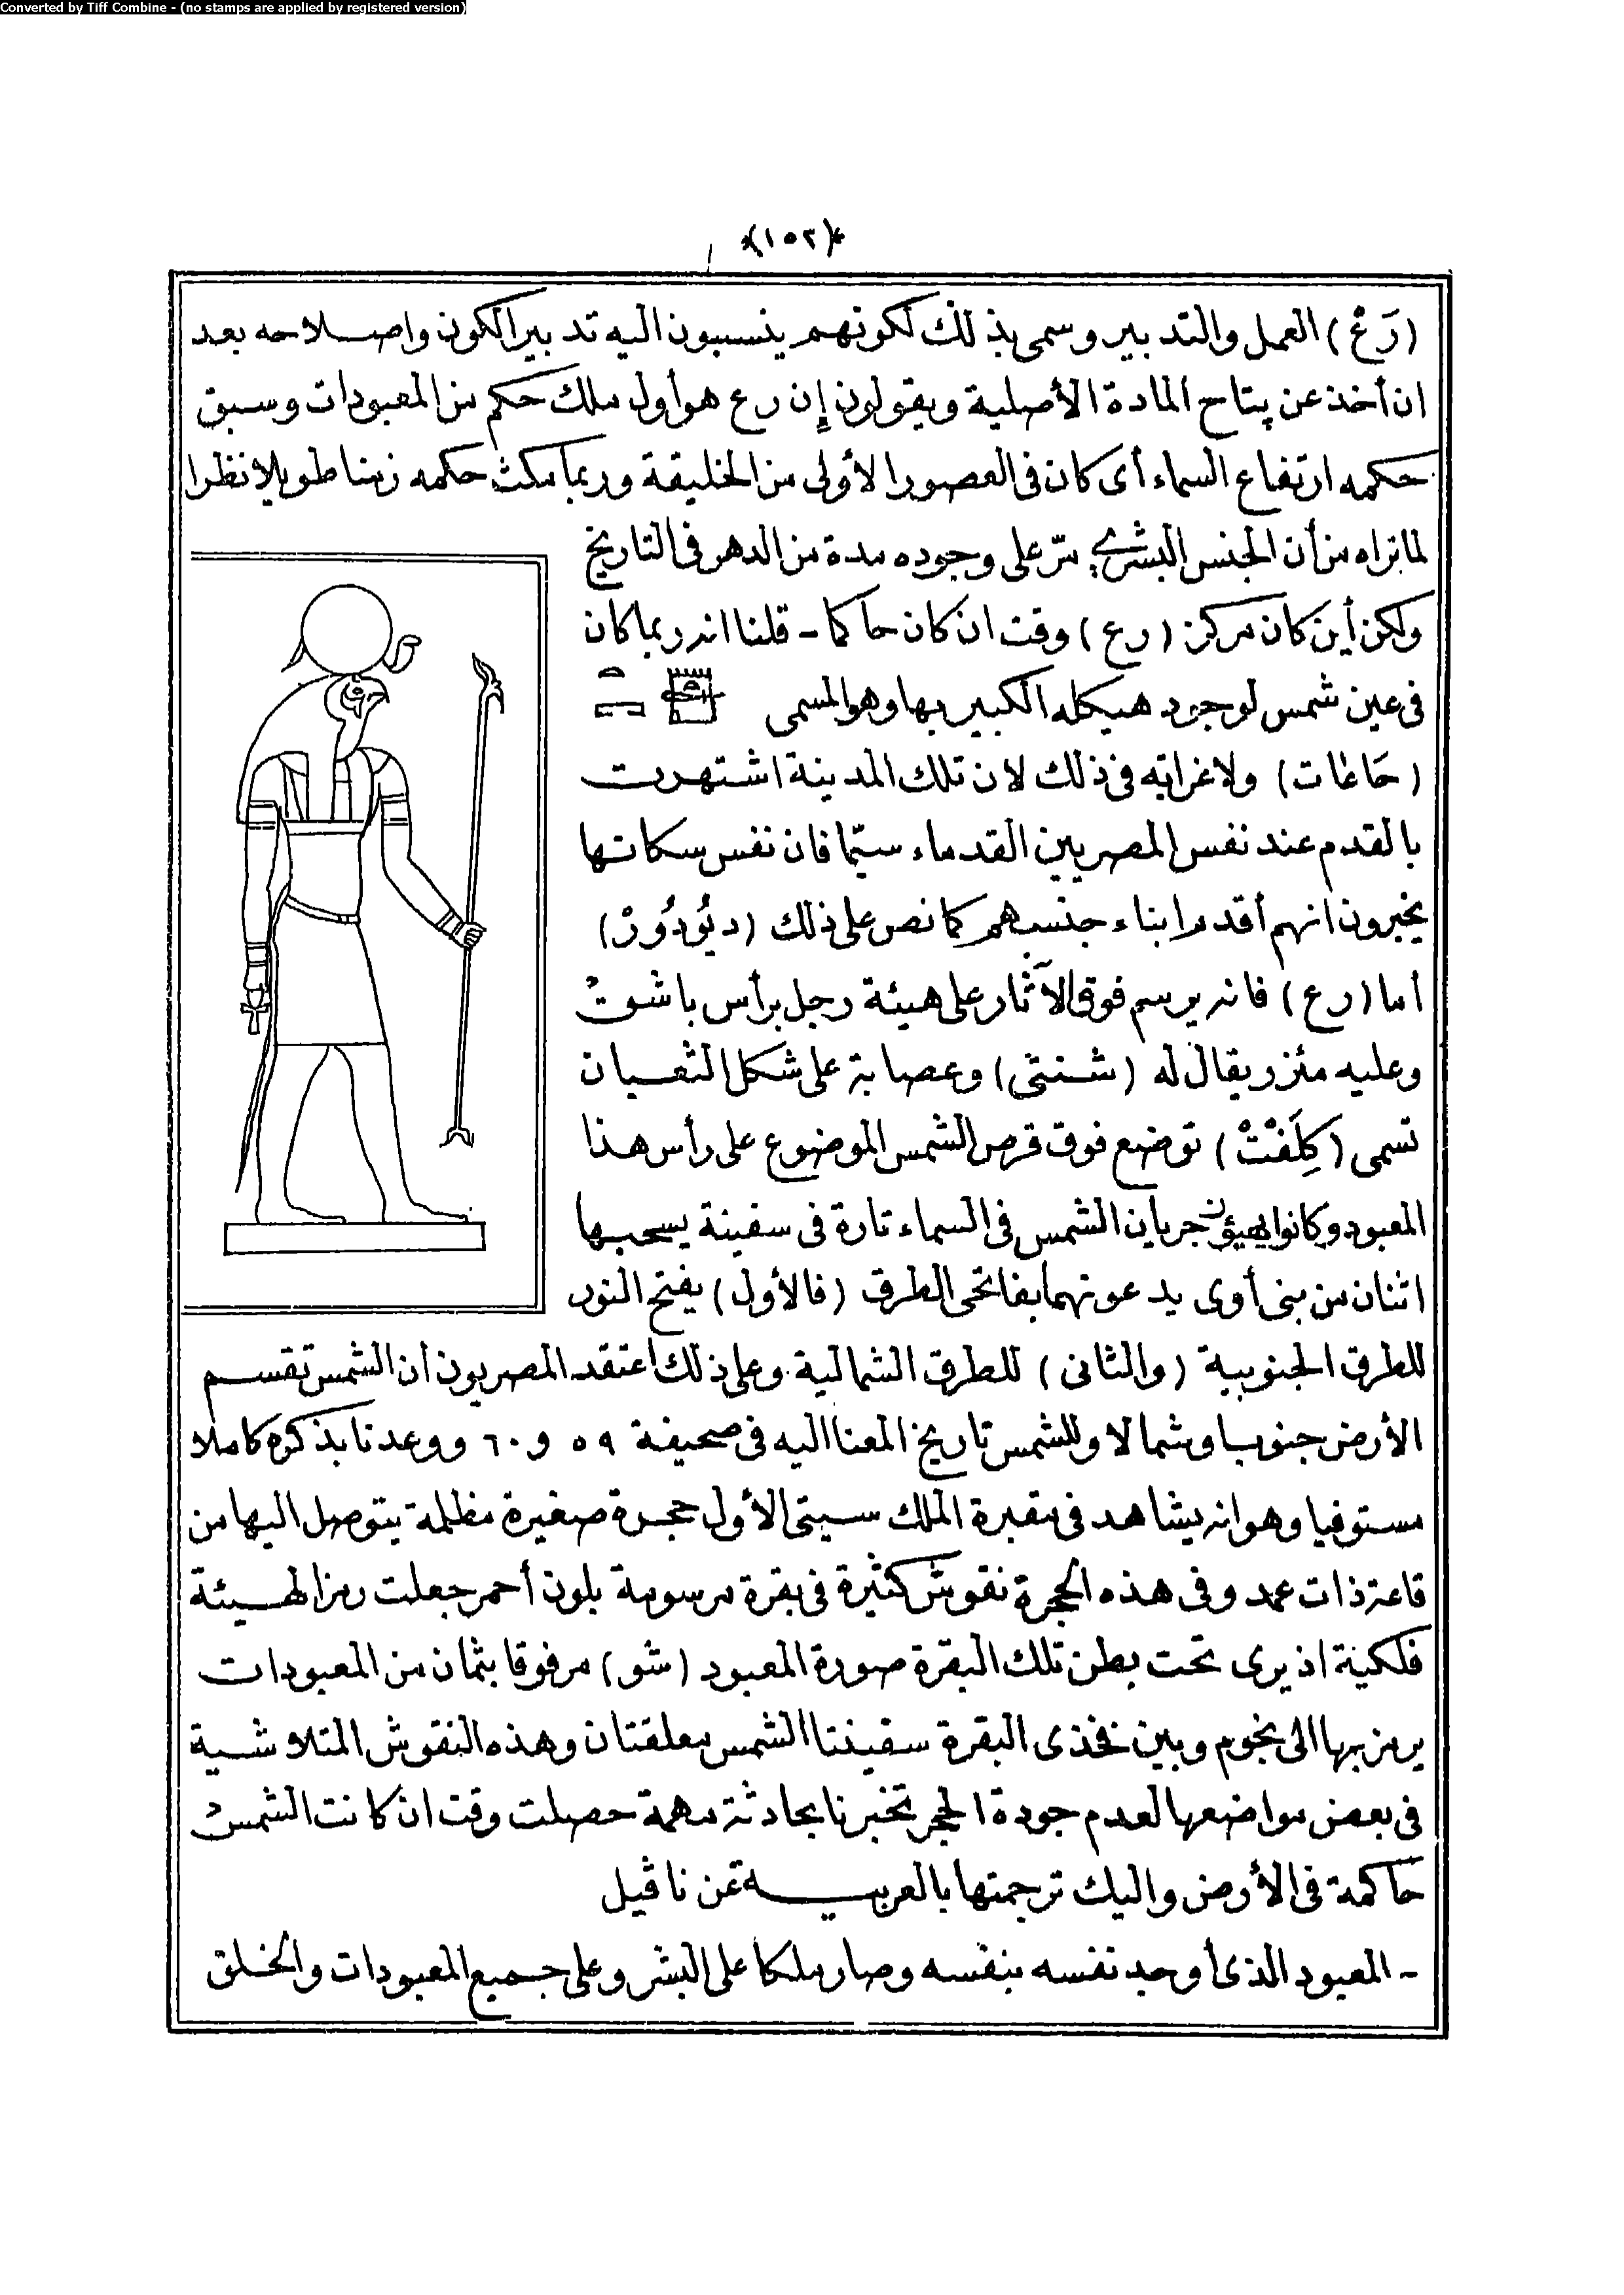 Converted by Tiff Combine - (no stamps are applied by registered version)
*(١٥٢)*
(رَعْ) العمل والتدبير وسمى بذلك لكونهم ينسبون اليه تدبير الكون واصلاحه بعد
ان أخذ عن پتاح المادة الأصلية ويقولون إن رع هو أول ملك حكم من المعبودات وسبق
حكمه ارتفاع السماء أى كان فى العصور الأولى من الخليقة وربما مكث حكمه زمنا طويلا نظرا
لما نراه من أن الجنس البشرى مرّ على وجوده مدة من الدهر فى التاريخ
ولكن أين كان مركز (رع) وقت ان كان حاكما - قلنا انه ربما كان
فى عين شمس لوجود هيكله الكبير بها وهو المسمى
(حَاعَات) ولا غرابه فى ذلك لان تلك المدينة اشتهرت
بالقدم عند نفس المصريين القدماء سيّما فان نفس سكانها
يخبرون انهم أقدم ابناء جنسهم كما نص على ذلك (ديُودُورْ)
أما (رع) فانه يرسم فوق الآثار على هيئة رجل برأس باشوت
وعليه مئزر يقال له (شنتى) وعصابة على شكل الثعبان
تسمى (كِلَفْتْ) توضع فوق قرص الشمس الموضوع على رأس هذا
المعبود وكانوا يهيؤن جريان الشمس فى السماء تارة فى سفينة يسحبها
اثنان من بنى أوى يدعونهما بفاتحى الطرق (فالأول) يفتح النور
للطرق الجنوبية (والثانى) للطرق الشمالية وعلى ذلك اعتقد المصريون أن الشمس تقسم
الأرض جنوبا وشمالا وللشمس تاريخ المعنا اليه فى صحيفة ٥٩ و ٦٠ ووعدنا بذكره كاملا
مستوفيا وهو انه يشاهد فى مقبرة الملك سيتى الأول حجرة صغيرة مظلمة يتوصل اليها من
قاعة ذات عمد وفى هذه الحجرة نقوش كثيرة فى بقرة مرسومة بلون أحمر جعلت رمزا لهيئة
فلكية اذ يرى تحت بطن تلك البقرة صورة المعبود (شو) مرفوقا بثمان من المعبودات
يرمز بها الى نجوم وبين فخذى البقرة سفينتا الشمس معلقتان وهذه النقوش المتلاشية
فى بعض مواضعها لعدم جودة الحجر تخبرنا بحادثة مهمة حصلت وقت ان كانت الشمس
حاكمة فى الأرض واليك ترجمتها بالعربيـة عن ناڤيل
- المعبود الذى أوجد نفسه بنفسه وصار ملكا على البشر وعلى جميع المعبودات والخلق